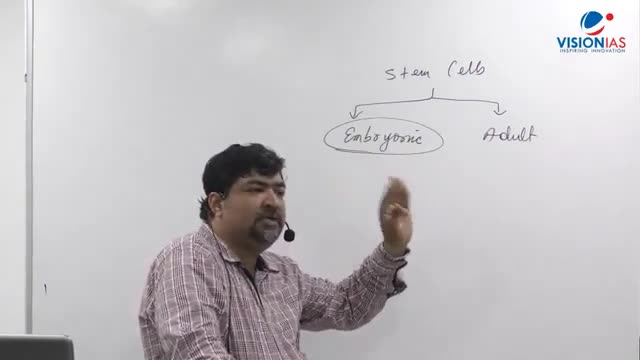 VISIONIAS
INSPIRING INNOVATION
Stem Cells
Embryonic Adult